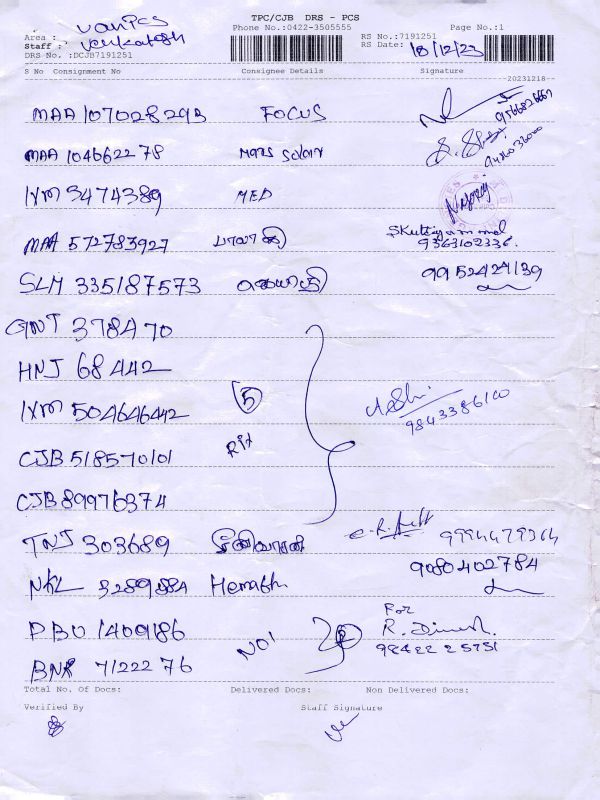 TPC/CJB DRS - PCS
Phone No.:0422-3505555
Page No.:1
Area : VanPCS
Staff : Venkatesh
DRS No. :DCJB7191251
RS No.:7191251
RS Date: 18/12/23
S No Consignment No Consignee Details Signature
20231218
MAA 107028293 FOCUS 9566826667
MAA 104662278
IXM 3474389 MED
MAA 572783927 SKuttiyammal
9363102336
SLM 335187573 9952424139
GNT 378470
HNJ 68442
IXM 504646442 5
9843386100
CJB 518570101 Rix
CJB 89976374
TNJ 303689 சீனிவாசன் 9994479364
NKL 3289884 Hemath 9080402784
PBU 1409186 For
R. Dinesh
NO1 2 98422 25751
BNR 7122276
Total No. Of Docs: Delivered Docs: Non Delivered Docs:
Verified By Staff Signature